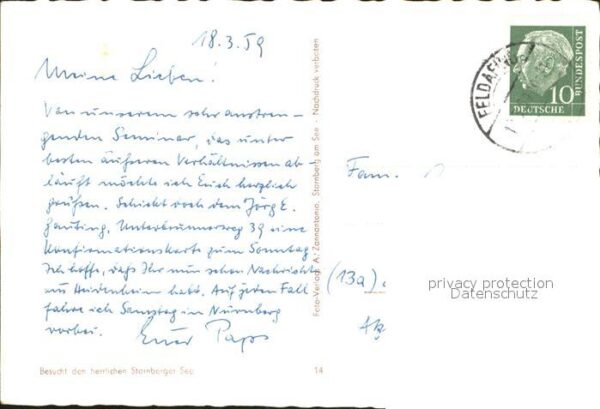 18.3.59
Meine Lieben!
Von unserem sehr anstren-
genden Seminar, das unter
besten äußeren Verhältnissen ab-
läuft möchte ich Euch herzlich
grüßen. Schickt noch dem Jörg E.
Gauting, Unterbrunnerweg 39 eine
Konfirmationskarte zum Sonntag
Ich hoffe, daß Ihr nun schon Nachricht
Heidenheim habt. Auf jeden Fall
fahre ich Samstag in Nürnberg
vorbei. Euer Paps
Besucht den herrlichen Starnberger See
14
Foto-Verlag A. Zannantonio, Starnberg am See - Nachdruck verboten
FELDAFING
10
DEUTSCHE
BUNDESPOST
Fam.
(13a)
privacy protection
Datenschutz